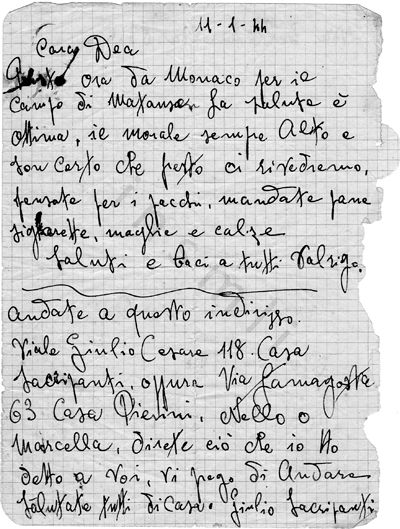 11-1-44
Cara Dea
Parto ora da Monaco per il
campo di Mataussen la salute è
ottima, il morale sempre Alto e
son certo che presto ci rivedremo,
pensate per i pacchi, mandate pane
sigarette, maglie e calze
Saluti e baci a tutti
andate a questo indirizzo.
Viale Giulio Cesare 118. Casa
Sacripanti, oppure Via Famagosta
63 Casa Pierini, Nello o
Marcella, direte ciò che io ho
detto a voi, vi prego di Andare
Salutate tutti di Casa. Giulio Sacripanti